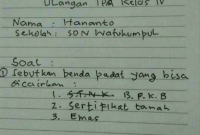 Ulangan IPA Kelas IV
Nama : Hananto
Sekolah : SDN Watukumpul
Soal :
① Sebutkan benda padat yang bisa
dicairkan :
1. S.T.N.K B.P.K.B
2. Sertifikat tanah
3. Emas